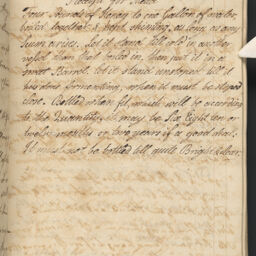 Receipt for Mead
Four Pounds of Honey to one Gallon of water,
boiled together & kept skimming, as long as any
Scum arises. Let it stand till cold in another
vessel than that boiled in, then put it in a
Barrel, let it stand unstop'd till it
has done fermenting, when it must be stoped
close. Bottled when fit, which will be according
to the Quantity, it may be Six, Eight ten or
twelve months or two years if a good deal.
It must not be bottled till quite Bright & clear.